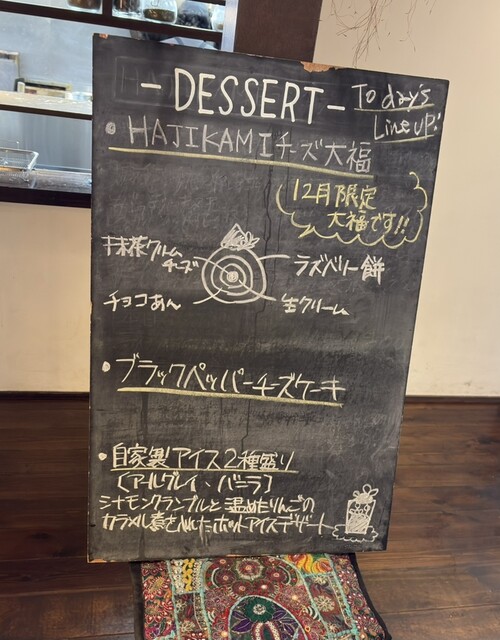 - DESSERT -
Today's
Line up!
• HAJIKAMIチーズ大福
12月限定
大福です!!
抹茶クリーム
チーズ
ラズベリー餅
チョコあん
生クリーム
• ブラックペッパーチーズケーキ
• 自家製アイス2種盛り
(アールグレイ、バニラ)
シナモンクランブルと温めたりんごの
カラメル煮を入れたホットアイスデザート